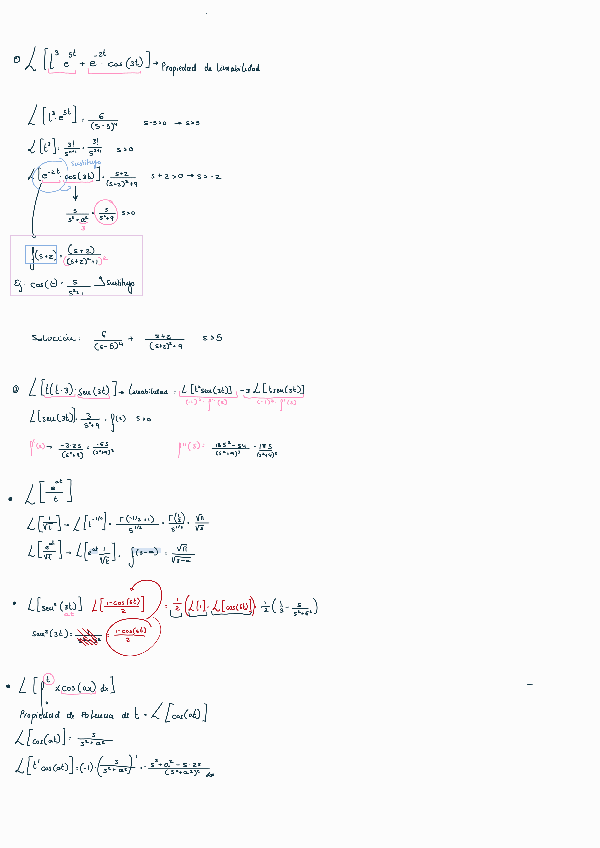 ① L[t³ e^{5t} + e^{-2t} cos(3t)] → Propiedad de linealidad
L[t³·e^{5t}] = 6/(s-5)⁴   s-5>0 → s>5
L[t³] = 3!/s^{3+1} = 3!/s^{3+1}   s>0
sustituyo
L[e^{-2t}·cos(3t)] = (s+2)/((s+2)²+9)   s+2>0 → s>-2
s/(s²+a²) = s/(s²+9)   s>0
3
f(s+2) = (s+2)/((s+2)²+1)²
Ej. cos(t) = s/(s²+1) sustituyo
Solución: 6/(s-5)⁴ + (s+2)/((s+2)²+9)   s>5
② L[t(t-3)·sen(3t)] → Linealidad = L[t²sen(3t)] - 3 L[tsen(3t)]
(-1)²·f''(s)   (-1)¹·f'(s)
L[sen(3t)] = 3/(s²+9) = f(s)   s>0
f'(s) →   f''(s) = (18s²-54)/(s²+9)³
• L[e^{at}/t]
L[1/√t] → L[t^{-1/2}] = Γ(-1/2+1)/s^{1/2} = Γ(1/2)/s^{1/2} = √π/√s
L[e^{at}/√t] → L[e^{at} 1/√t] = f(s-a) = √π/√(s-a)
• L[sen²(3t)] L[(1-cos(6t))/2] = 1/2 (L[1] - L[cos(6t)]) = 1/2 (1/s - s/(s²+6²))
at
sen²(3t) = (1-cos(6t))/2
• L[∫ᵗ x cos(ax) dx]
Propiedad de Potencia de t = L[cos(at)]
L[cos(at)] = s/(s²+a²)
L[t¹cos(at)] = (-1)·(s/(s²+a²))' = - (s²+a²-s·2s)/(s²+a²)²